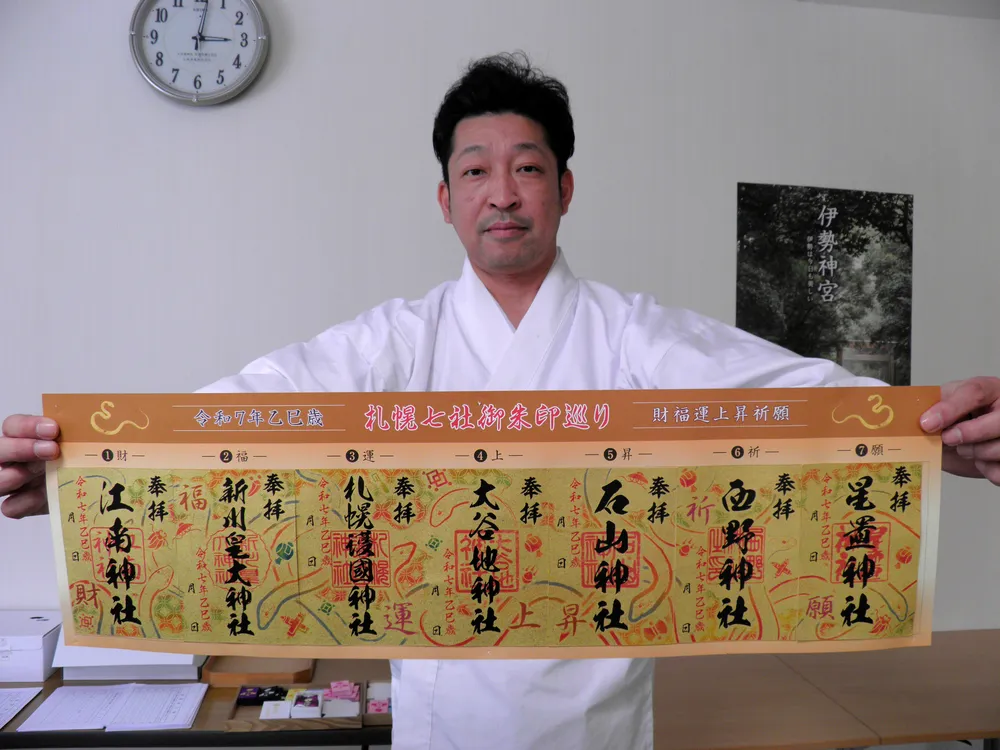 10
11
12
1
2
9
3
8
4
7
6
5
伊勢神宮
令和7年乙巳歳
札幌七社御朱印巡り
財福運上昇祈願
❶財
❷福
❸運
❹上
❺昇
❻祈
❼願
奉拝
江南神社
令和七年乙巳歳
月
日
財
奉拝
新川皇大神社
令和七年乙巳歳
月
日
福
奉拝
札幌護國神社
令和七年乙巳歳
月
日
運
奉拝
大谷地神社
令和七年乙巳歳
月
日
上
奉拝
石山神社
令和七年乙巳歳
月
日
昇
奉拝
西野神社
令和七年乙巳歳
月
日
祈
奉拝
星置神社
令和七年乙巳歳
月
日
願